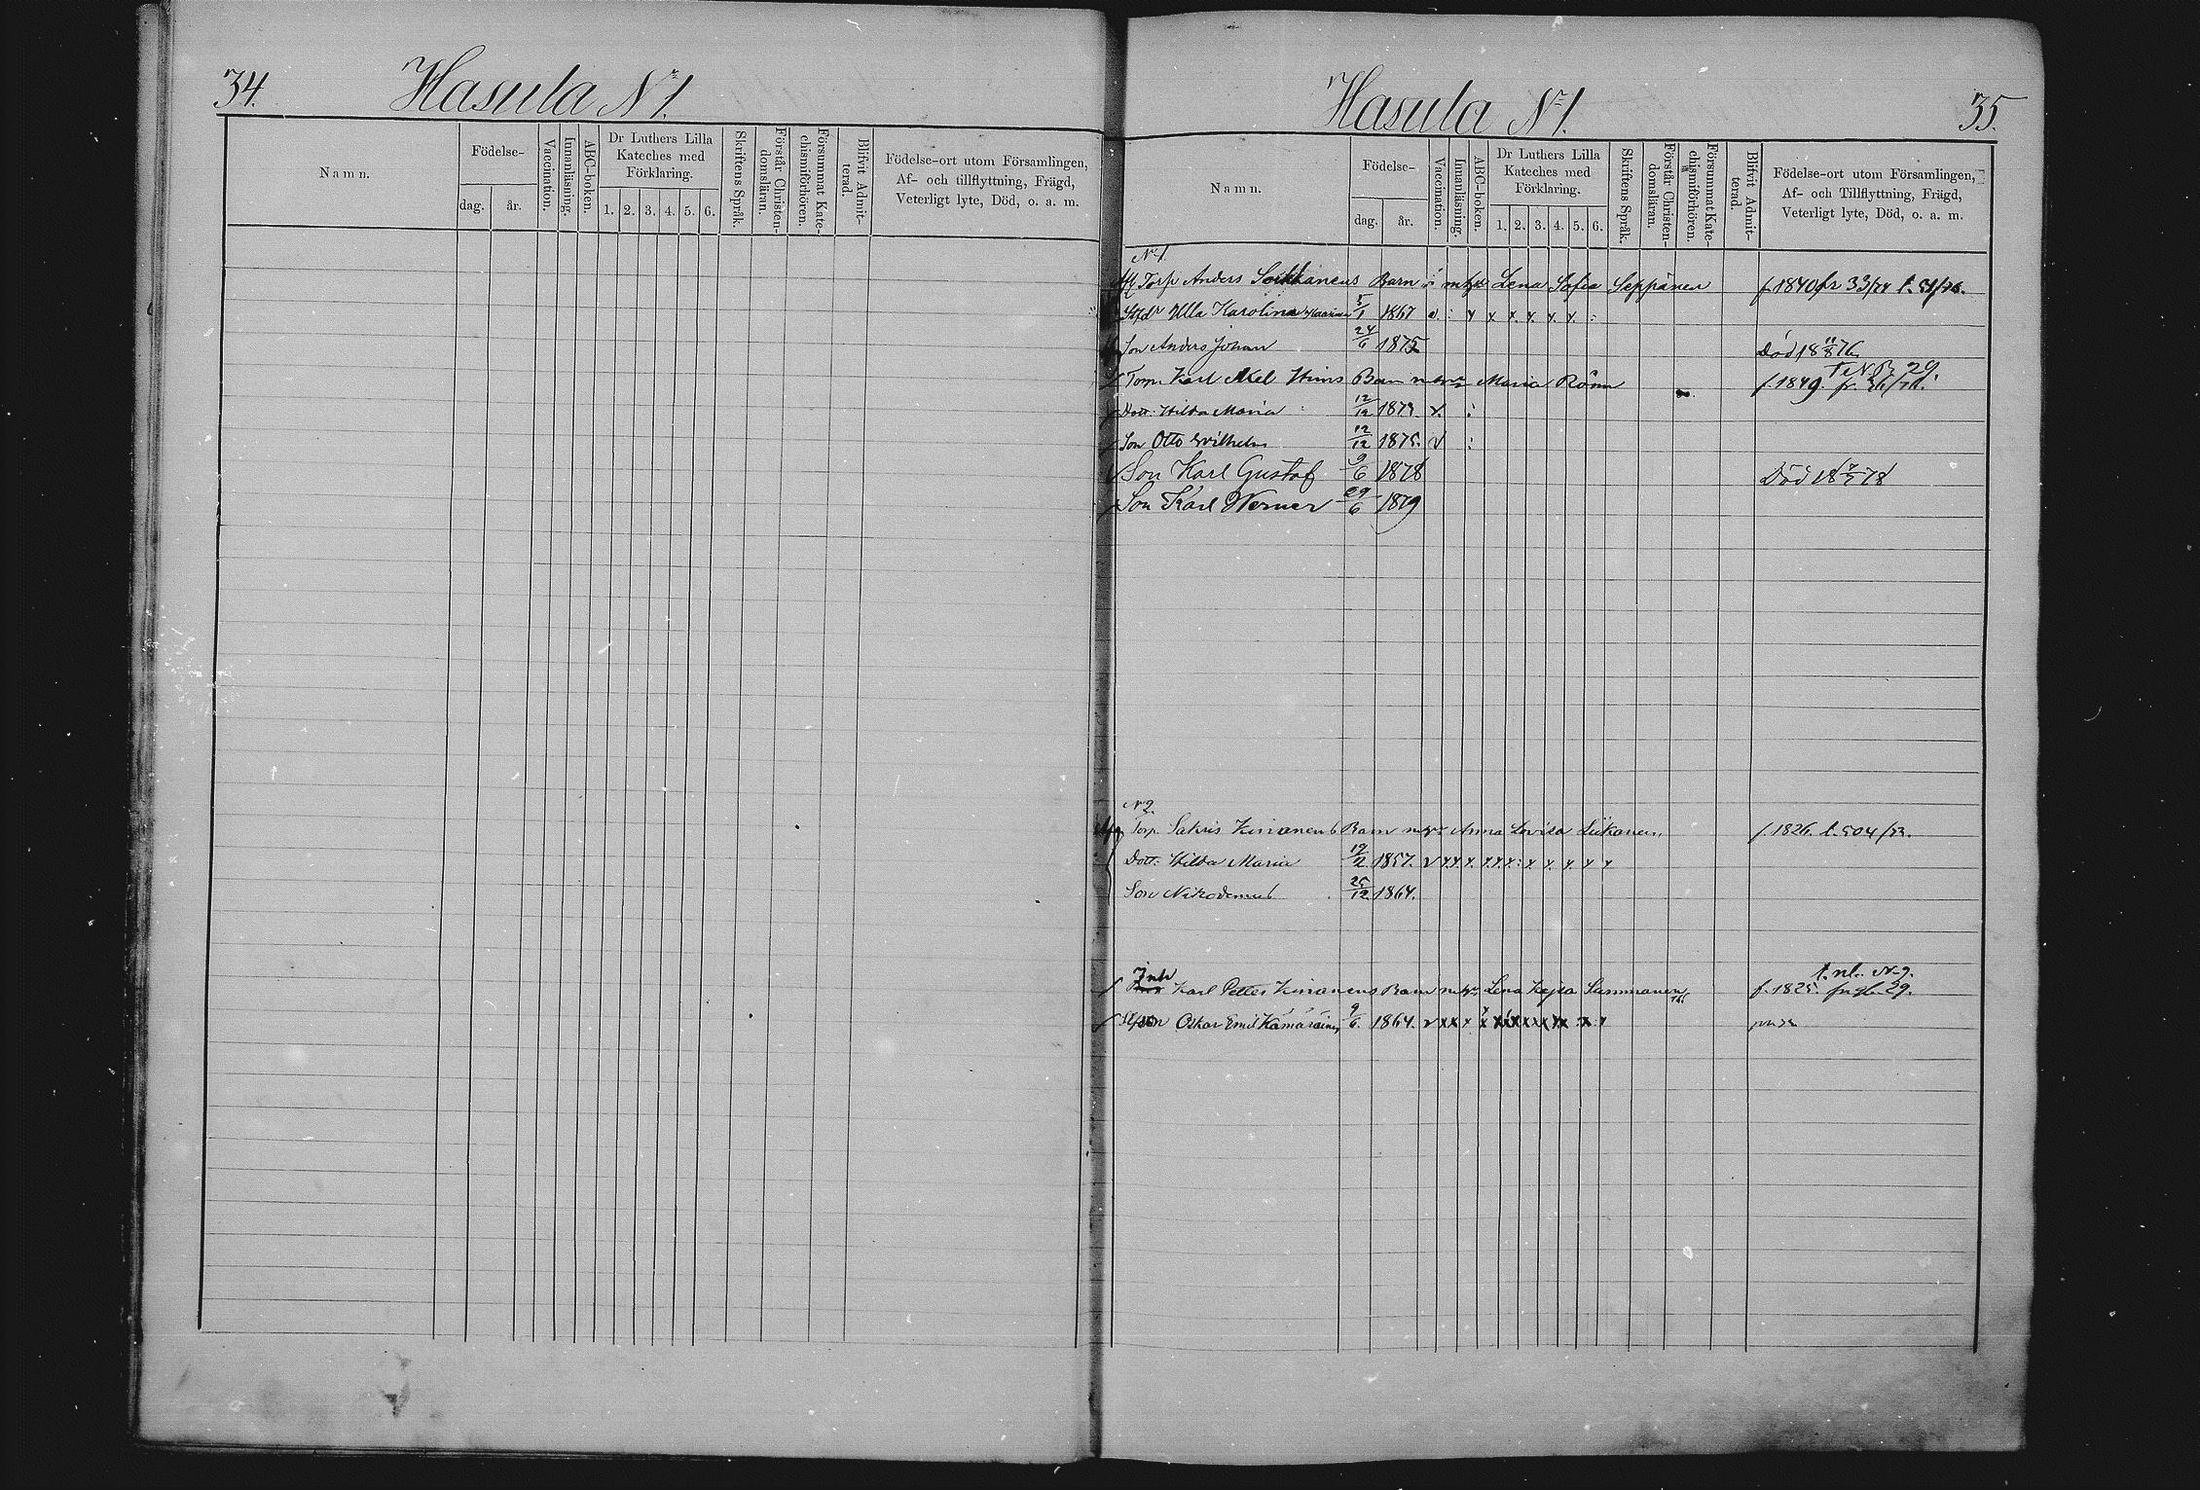 34.
Hasula Nr 1.
Namn.
Födelse-
dag. år.
Vaccination.
Innanläsning.
ABC-boken.
Dr Luthers Lilla
Kateches med
Förklaring.
1. 2. 3. 4. 5. 6.
Skriftens Språk.
Förstår Christen-
domsläran.
Försummat Kate-
chismiförhören.
Blifvit Admit-
terad.
Födelse-ort utom Församlingen,
Af- och tillflyttning, Frägd,
Veterligt lyte, Död, o. a. m.
Hasula Nr 1.
35.
Namn.
Födelse-
dag. år.
Vaccination.
Innanläsning.
ABC-boken.
Dr Luthers Lilla
Kateches med
Förklaring.
1. 2. 3. 4. 5. 6.
Skriftens Språk.
Förstår Christen-
domsläran.
Försummat Kate-
chismiförhören.
Blifvit Admit-
terad.
Födelse-ort utom Församlingen,
Af- och Tillflyttning, Frägd,
Veterligt lyte, Död, o. a. m.
N1.
Torp Anders Barn Lena Sofia Seppänen f. 1840
Ulla Karolina 5/1 1867
Son Anders Johan 24/6 1875 Död 18 11/8 76
Torp. Karl Axel Barn Maria Rönn f. 1849.
Dott. Hilda Maria 12/12 1873 v.
Son Otto Wilhelm 12/12 1875. v
Son Karl Gustaf 9/6 1878 Död
Son Karl Werner 29/6 1879
N2.
Torp. Sakris Kinanens Barn Anna Lovisa Liikanen f. 1826. 504/73.
Dott. Hilda Maria 1857. v x x x x x x : x x x x x
Son Nikodemus 25/12 1864.
Inh
Karl Petter Kinanens Barn Lena Kajsa Summanen f. 1825. 29.
Oskar Emil Kämäräinen 9/6 1864. v